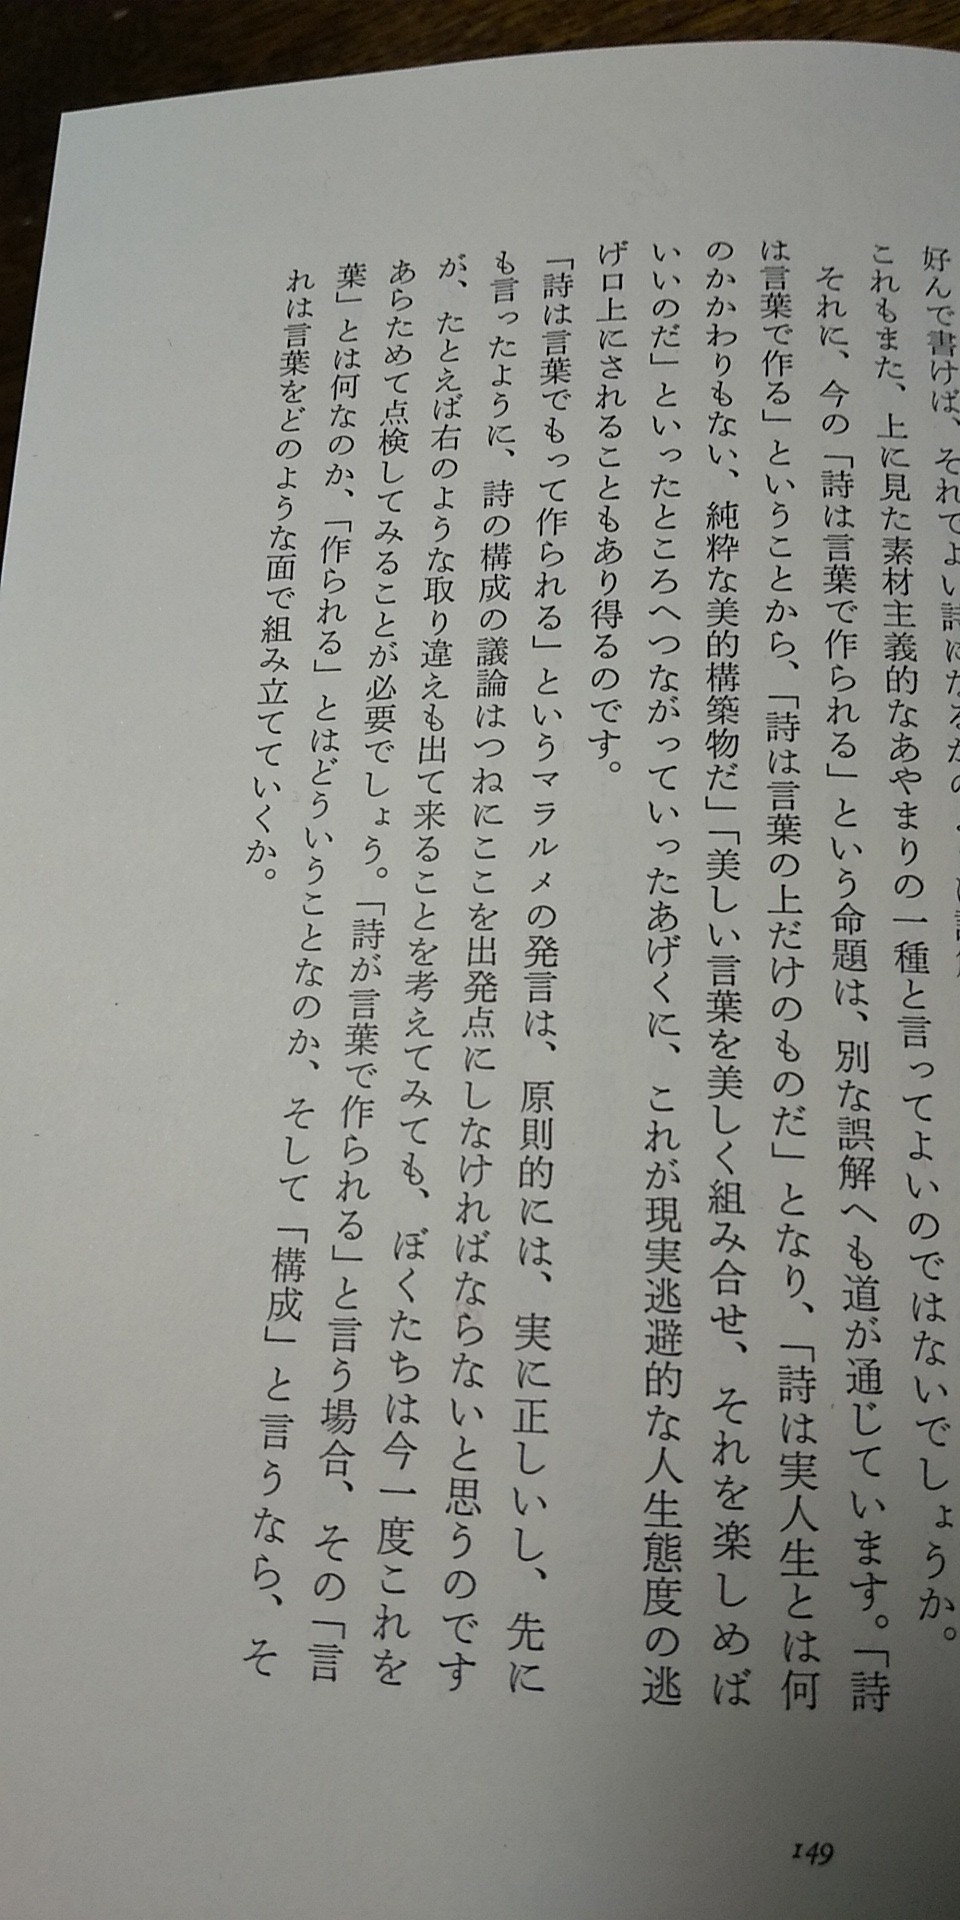 好んで書けば、それでよい詩になるかの
これもまた、上に見た素材主義的なあやまりの一種と言ってよいのではないでしょうか。
それに、今の「詩は言葉で作られる」という命題は、別な誤解へも道が通じています。「詩
は言葉で作る」ということから、「詩は言葉の上だけのものだ」となり、「詩は実人生とは何
のかかわりもない、純粋な美的構築物だ」「美しい言葉を美しく組み合せ、それを楽しめば
いいのだ」といったところへつながっていったあげくに、これが現実逃避的な人生態度の逃
げ口上にされることもあり得るのです。
「詩は言葉でもって作られる」というマラルメの発言は、原則的には、実に正しいし、先に
も言ったように、詩の構成の議論はつねにここを出発点にしなければならないと思うのです
が、たとえば右のような取り違えも出て来ることを考えてみても、ぼくたちは今一度これを
あらためて点検してみることが必要でしょう。「詩が言葉で作られる」と言う場合、その「言
葉」とは何なのか、「作られる」とはどういうことなのか、そして「構成」と言うなら、そ
れは言葉をどのような面で組み立てていくか。
149